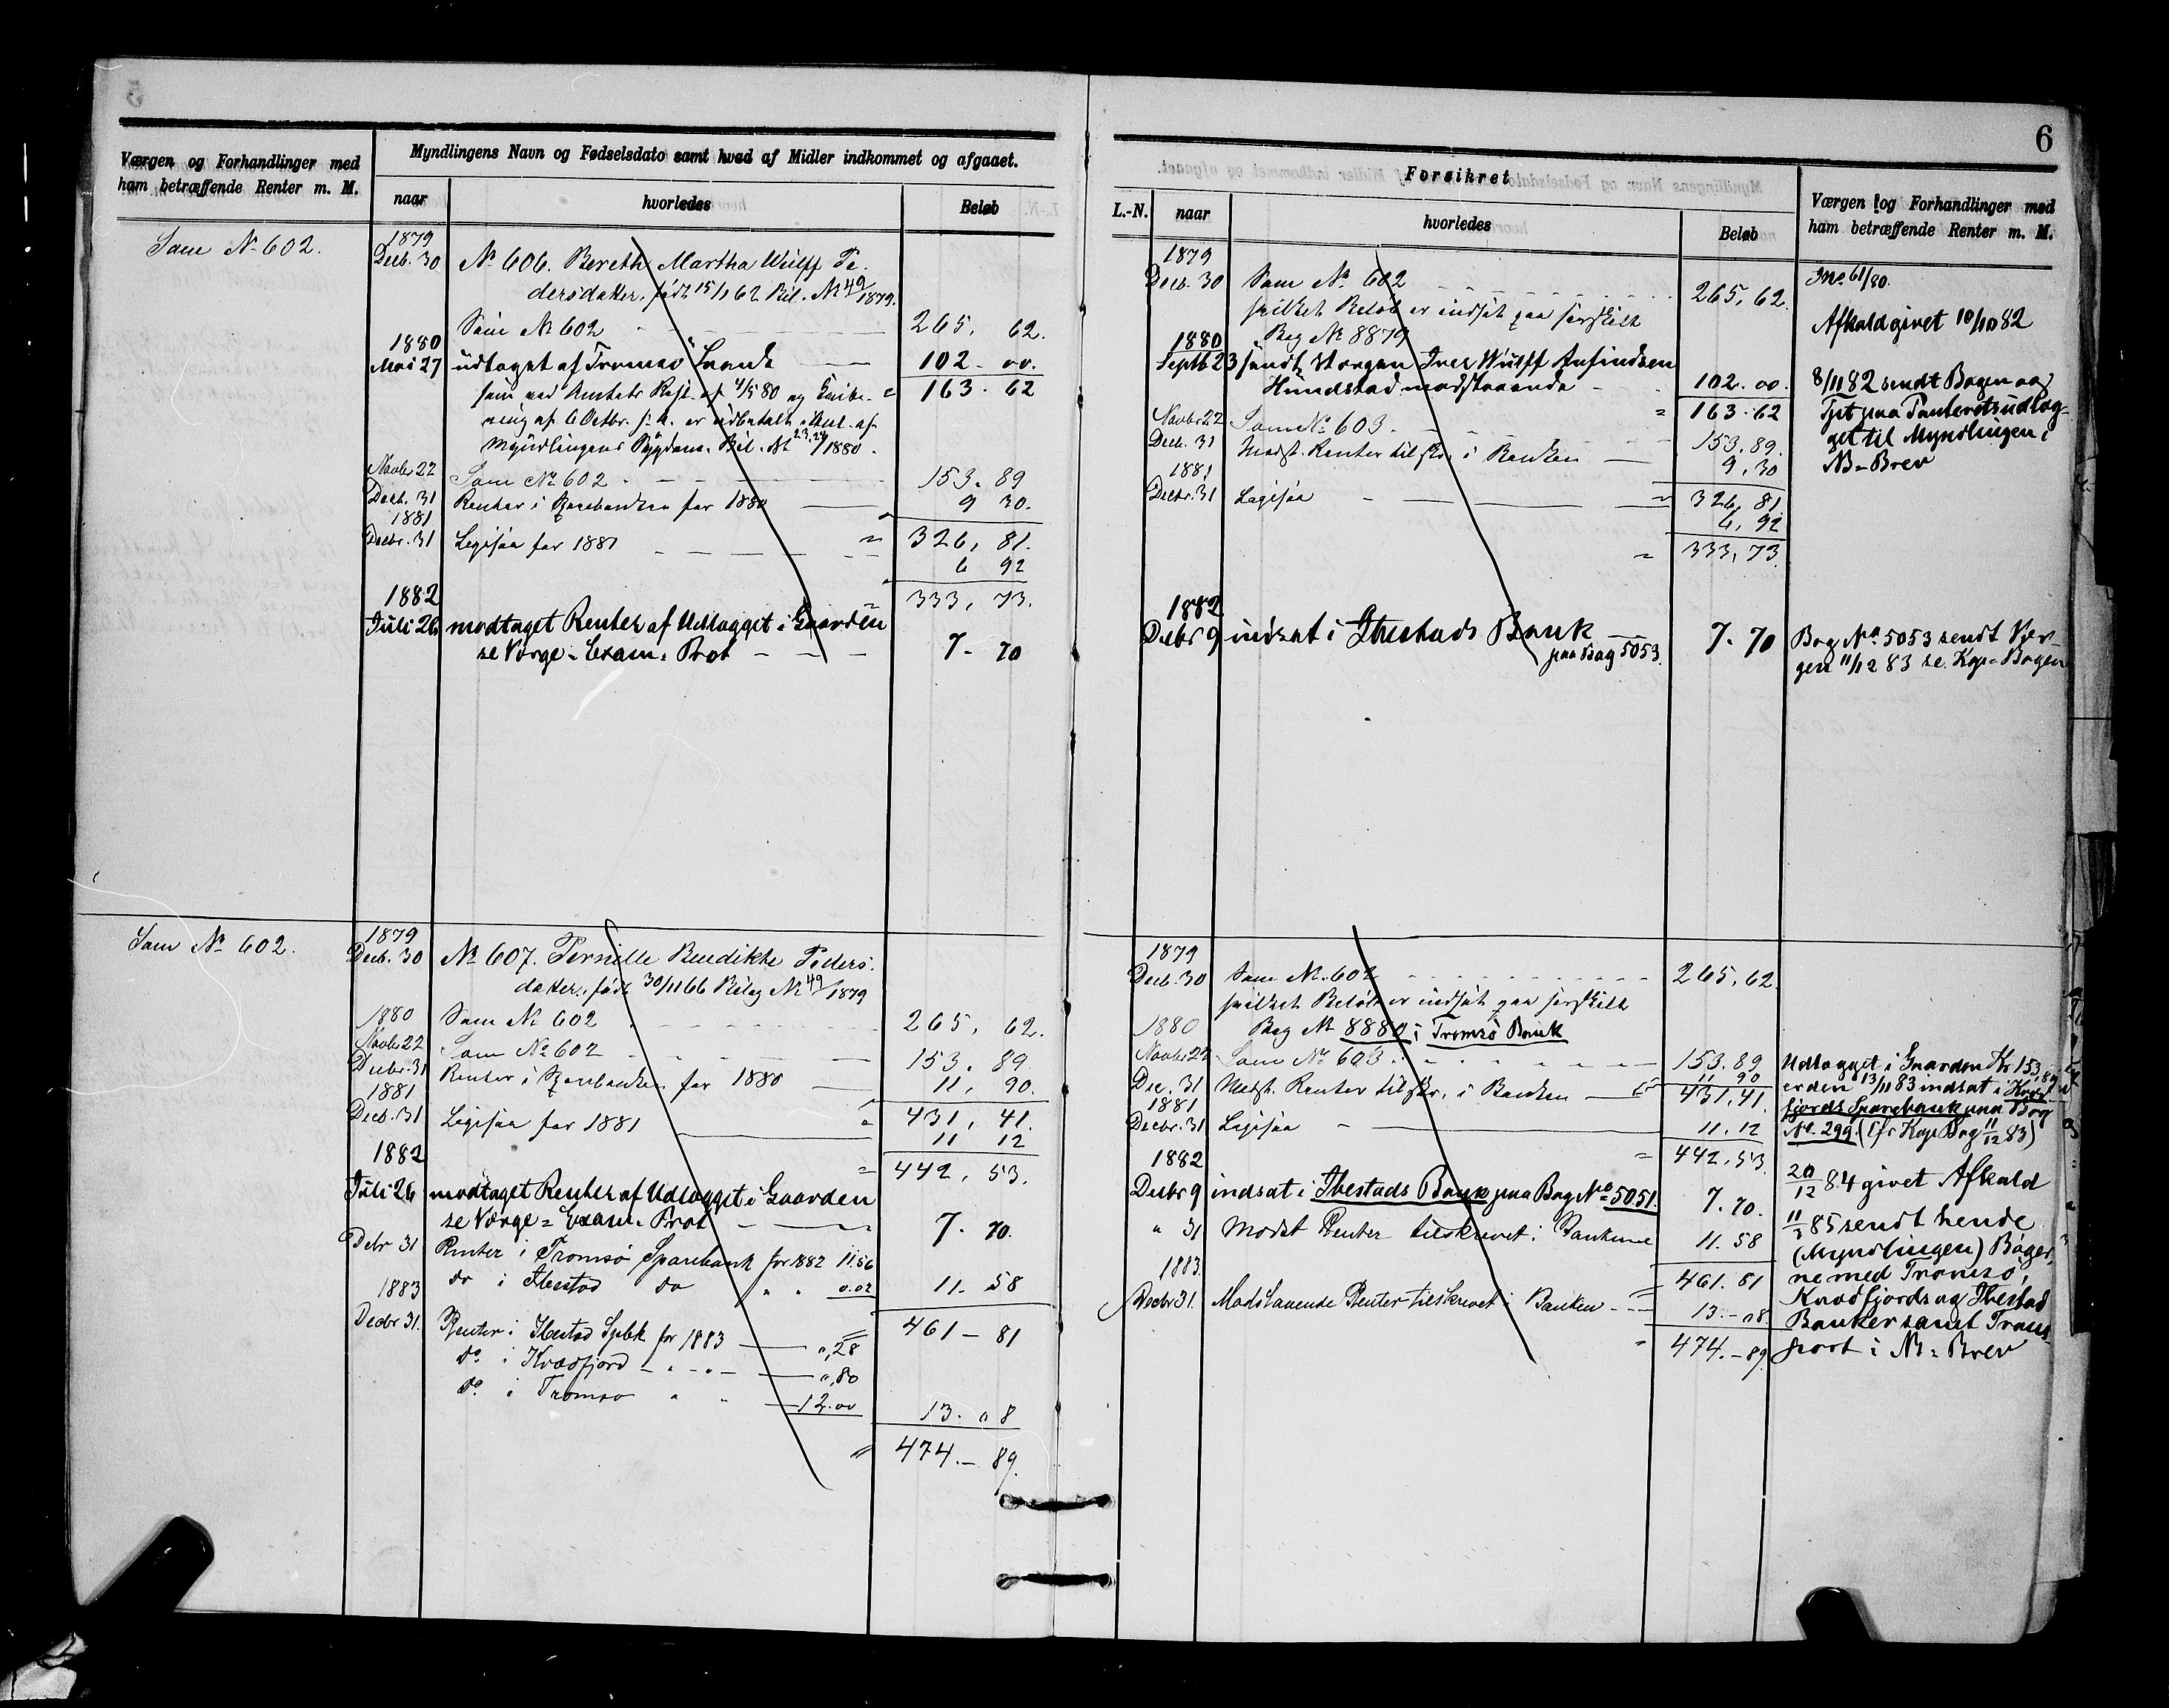 6
Værgen og Forhandlinger med
ham betræffende Renter m. M.
Myndlingens Navn og Fødselsdato samt hvad af Midler indkommet og afgaaet.
naar
hvorledes
Beløb
Som No 602.
1879
Decb. 30 No 606. Bereth Martha Wulff Pe-
dersdatter, født 15/1 62 Bil. No 49/1879.
Som No 602 265, 62.
1880
Mai 27 udtaget af Tromsø Bank 102 - 00.
163 . 62
ning af 6 Octbr. s. A. er udbetalt
Myndlingens Sygdom. Bil. No 23.24/1880.
Novbr 22 Som No 602 153. 89
Decb. 31 Renter i Sparebanken for 1880 9 30.
1881
326, 81.
Decbr. 31 Ligesaa for 1881 6 92
333, 73.
1882
Juli 26 modtaget Renter af Udlægget i Gaarden
se Værge-Exam. Prot 7 - 70
Som No 602.
1879
Decb. 30 No 607. Pernille Bendikte Peders-
datter, født 30/11 66 Bilag No 49/1879
Som No 602 265, 62.
1880
Novbr 22 Som No 602 153. 89
Decbr. 31 Renter i Sparebanken for 1880 11, 90.
1881
431, 41.
Decb. 31 Ligesaa for 1881 11 12
442, 53.
1882
Juli 26 modtaget Renter af Udlægget i Gaarden
se Værge-Exam. Prot 7. 70.
Debr 31 Renter i Tromsø Sparebank for 1882 11.56
do i Ibestad do " " 0.02 11. 58
461 - 81
1883
Decbr 31. Renter i Ibestad Spbk for 1883 ",28
do i Kvædfjord - " - ",80
do i Tromsø " " 12.00
13. "8
474. - 89.
Forsikret
L.-N.
naar
hvorledes
Beløb
Værgen og Forhandlinger med
ham betræffende Renter m. M.
1879
Decb. 30 Som No 602 265, 62.
hvilket Beløb er indsat paa særskilt
Bog No 8879
1880
Septb 23 sendt Værgen Iver Wulff Anfindsen
Hundstad modstaaende 102. 00.
163. 62
Novbr 22 Som No 603. 153. 89.
Decb. 31 Modst. Renter tilskr. i Banken 9, 30
1881
326, 81
Decbr. 31 Ligesaa 6, 92
333, 73.
1882
Decbr 9 indsat i Ibestads Bank
paa Bog 5053. 7. 70
Jno 61/80.
Afkald givet 10/10 82
8/11 82 sendt Bogen og
get til Myndlingen i
NB-Brev
Bog No 5053 sendt Vær-
gen 11/12 83 se. Kop-Bogen
1879
Decb. 30 Som No. 602 265, 62.
hvilket Beløb er indsat paa særskilt
Bog No 8880 i Tromsø Bank
1880
Novbr 22 Som No 603 153. 89
Dec. 31 Modst. Renter tilskr. i Banken 11 90
1881
431, 41.
Decbr. 31 Ligesaa 11. 12
442, 53.
1882
Decbr 9 indsat i Ibestads Bank paa Bog No 5051. 7. 70.
" 31 Modst Renter tilskrevet i Bankerne 11. 58
461. 81
1883.
Decbr 31. Modstaaende Renter tilskrevet i Banken 13. - "8.
474. - 89.
Udlægget i Gaarden Kr 153,89
er den 13/11 83 indsat i Kvæd-
fjords Sparebank paa Bog
No. 299. (cfr Kop Bog 11/12 83)
20/12 84 givet Afkald
11/2 85 sendt hende
(Myndlingen) Bøger-
ne med Tromsø,
Kvædfjords og Ibestad
Banker samt Trans-
port i NB-Brev